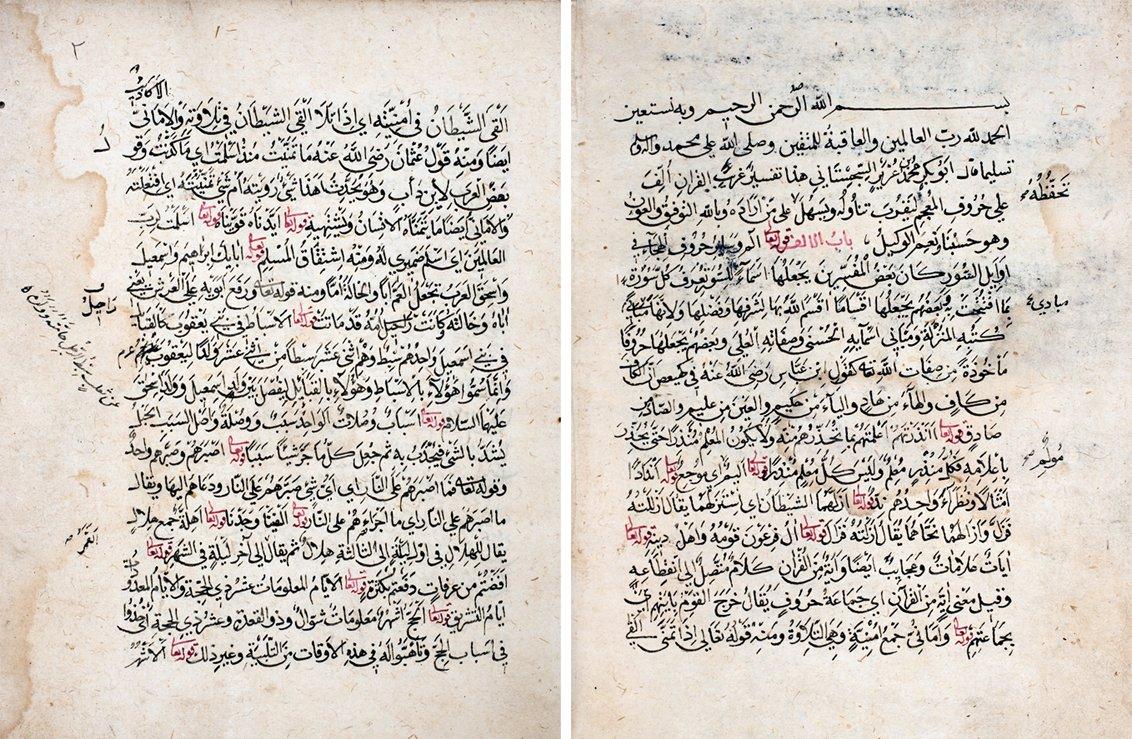 بسم الله الرحمن الرحيم وبه نستعين
الحمد لله رب العالمين والعاقبة للمتقين وصلى الله على محمد وآله وسلم
تسليما قال ابو بكر محمد بن عزيز السجستاني هذا تفسير غريب القران الف
على حروف المعجم ليقرب تناوله ويسهل على من اراده وبالله التوفيق والعون
تحفظه
وهو حسبنا ونعم الوكيل باب الالف قوله تعالى الم وسائر حروف الهجاء في
اوايل السور كان بعض المفسرين يجعلها اسماء للسور تعرف كل سورة
بما افتتحت به وبعضهم يجعلها اقساما اقسم الله بها لشرفها وفضلها ولانها مبادئ
مبادئ
كتبه المنزلة ومباني اسمايه الحسنى وصفاته العلى وبعضهم يجعلها حروفا
مأخوذة من صفات الله تعالى كقول ابن عباس رضي الله عنه في كهيعص ان الكاف
من كاف والهاء من هاد والياء من حكيم والعين من عليم والصاد من
صادق قوله تعالى أانذرتهم اعلمتهم بما تحذرهم منه ولا يكون المعلم منذرا حتى يحذر
باعلامه فكل منذر معلم وليس كل معلم منذرا قوله تعالى اليم اي موجع قوله تعالى اندادا
مولم
امثالا ونظراء واحدهم ند قوله تعالى ازلهما الشيطان اي استزلهما يقال ازللته
فزل وازالهما نحاهما يقال ازلته فزال قوله تعالى ال فرعون قومه واهل دينه قوله تعالى
ايات علامات وعجايب ايضا واية من القران كلام متصل الى انقطاعه
وقيل معنى اية من القران اي جماعة حروف يقال خرج القوم بايتهم اي
بجماعتهم قوله تعالى وامانى جمع امنية وهي التلاوة ومنه قوله تعالى اذا تمنى القى
٢
الاكاذيب
القى الشيطان في امنيته اي اذا تلا القى الشيطان في تلاوته والامانى
ايضا ومنه قول عثمان رضي الله عنه ما تمنيت منذ اسلمت اي ما كذبت وقول
بعض العرب لابن دأب وهو يحدث اهذا شئ رويته ام شئ تمنيته اي افتعلته
والامانى ايضا ما يتمناه الانسان ويشتهيه قوله تعالى ايدناه قويناه قوله تعالى اسلمت لرب
العالمين اي اسلم ضميري له ومنه اشتقاق المسلم قوله تعالى ابايك ابراهيم واسمعيل
واسحق العرب تجعل العم ابا والخالة اما ومنه قوله تعالى ورفع ابويه على العرش يعني
اباه وخالته وكانت راحيل امه قد ماتت قوله تعالى الاسباط في بني يعقوب كالقبايل
راحيل
في بني اسمعيل واحدهم سبط وهم اثنى عشر سبطا من اثني عشر ولدا ليعقوب
وانما سموا هؤلاء بالاسباط وهؤلاء بالقبايل ليفصل بين ولد اسمعيل وولد اسحق
عليهما السلام قوله تعالى اسباب وصلات الواحد سبب ووصلة واصل السبب الحبل
يشد بالشئ فيجذب به ثم جعل كل ما جر شيئا سببا قوله تعالى اصبرهم وصبرهم واحد
وقوله تعالى فما اصبرهم على النار اي اي شئ صبرهم على النار ودعاهم اليها ويقال
ما اصبرهم على النار اي ما اجرأهم على النار قوله تعالى الفينا وجدنا قوله تعالى اهلة جمع هلال
يقال للهلال في اول ليلة الى الثالثة هلال ثم يقال الى اخر ليلة في الشهر قوله تعالى
القمر
افضتم من عرفات دفعتم بكثرة قوله تعالى الايام المعلومات عشر ذي الحجة والايام المعدودات
ايام التشريق قوله تعالى الحج اشهر معلومات شوال وذو القعدة وعشر ذي الحجة اي خذوا
في اسباب الحج وتأهبوا له في هذه الاوقات من التلبية وغير ذلك قوله تعالى الاشهر